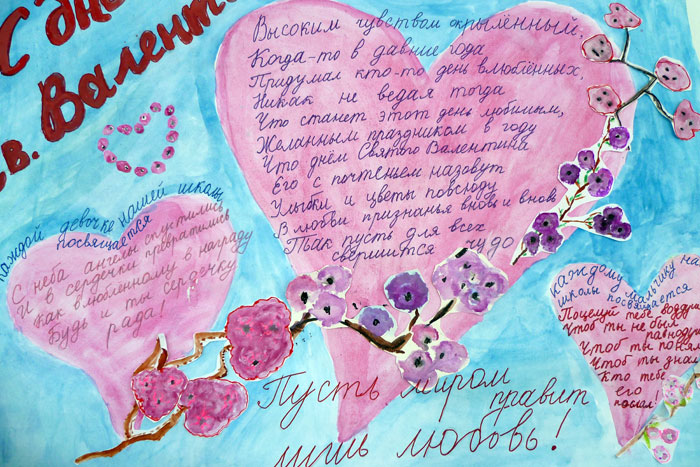 С дне
св. Валент
Высоким чувством окрылённый,
Когда-то в давние года
Придумал кто-то день влюблённых,
Никак не ведая тогда
Что станет этот день любимым,
Желанным праздником в году
Что днём Святого Валентина
Его с почтеньем назовут
Улыбки и цветы повсюду
В любви признанья вновь и вновь
Так пусть для всех
свершится чудо
каждой девочке нашей школы
посвящается
С неба ангелы спустились
И в сердечки превратились
Как влюбленному в награду
Будь и ты сердечку
рада!
каждому мальчику на
школы посвящается
Поцелуй тебе возду
Чтоб ты не был
равноду
Чтоб ты понял
Чтоб ты знал
Кто тебе
его
послал
Пусть миром
правит
лишь любовь!